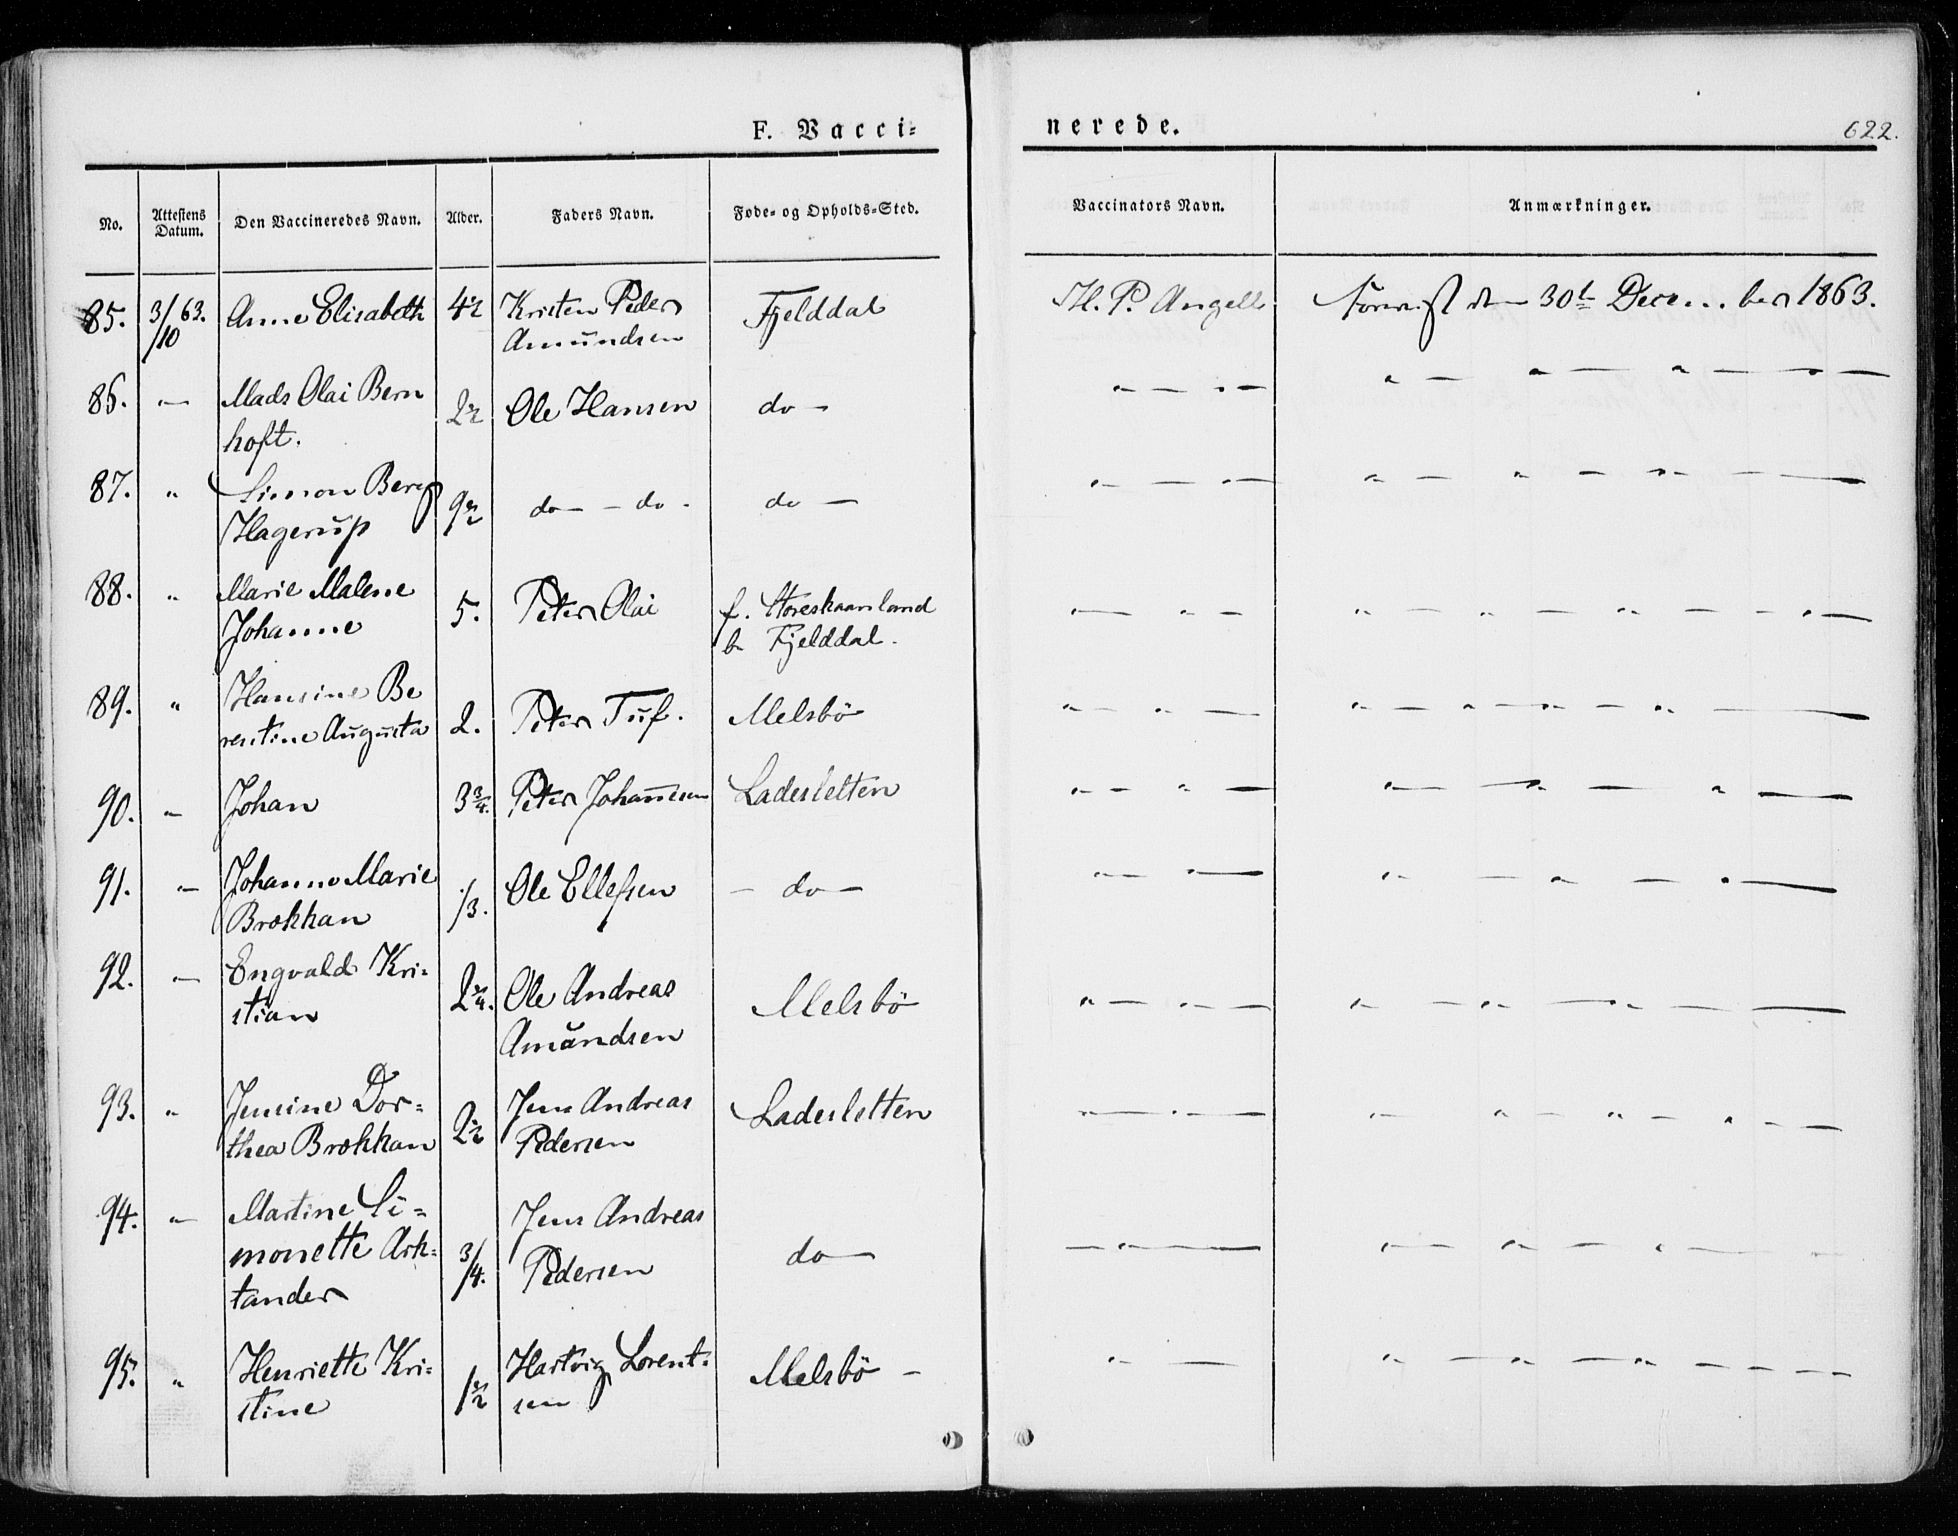 F. Vacci-
nerede.
622.
No.
Attestens Datum.
Den Vaccineredes Navn.
Alder.
Faders Navn.
Føde- og Opholds-Sted.
Vaccinators Navn.
Anmærkninger.
85. 3/10 63. Anne Elisabeth 4½ Kristen Peder Fjelddal H. P. Angell Foreviist den 30te December 1863.
Amundsen
86. — Mads Olai Bern 2½ Ole Hansen do —
hoft.
87. " Simon Berg 9½ do — do. do —
Hagerup
88. " Marie Malene 5. Peter Olai f. Storeskaanland
Johanne b. Fjelddal.
89. " Hansine Be
rentine Augusta 2. Peter Tuf. Melsbö
90. — Johan 3¾. Peter Johannesen Ladesletten
91. — Johanne Marie 1/3. Ole Ellefsen — do —
Brokkan
92. — Engvald Kri- Ole Andreas Melsbö
stian Amundsen
93. " Jensine Dor- 2½ Jens Andreas Ladesletten
thea Brokkan Pedersen
94. " Martine Si- Jens Andreas
monette Ark- 3/4. Pedersen do —
tander
95. " Henriette Kri- 1½ Hartvig Lorent- Melsbö —
stine sen